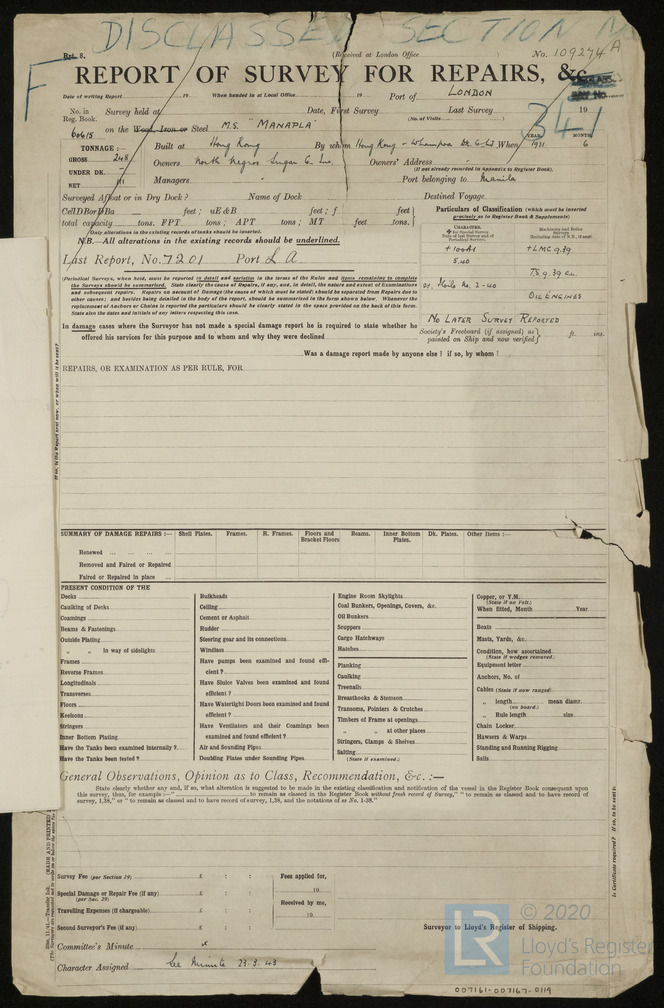 DISCLASSED SECTION
Rpt. 8.
(Received at London Office )
No. 109274A
F
REPORT OF SURVEY FOR REPAIRS, &c.
Date of writing Report 19 When handed in at Local Office 19 Port of LONDON
No. in Reg. Book. Survey held at Date, First Survey Last Survey 19
(No. of Visits )
341
60615 on the Wood, Iron or Steel M.S. "MANAPLA"
YEAR. MONTH
TONNAGE :— Built at Hong Kong By whom Hong Kong - Whampoa Dk. Co. Ld. When 1931 6
GROSS 248
Owners North Negros Sugar Co. Inc. Owners' Address
UNDER DK. -
(If not already recorded in Appendix to Register Book).
NET 111
Managers Port belonging to Manila
Surveyed Afloat or in Dry Dock? Name of Dock Destined Voyage
CellDBorDBa feet; uE&B feet; f feet
total capacity tons. FPT tons; APT tons; MT feet tons.
Only alterations in the existing records of tanks should be inserted.
N.B.—All alterations in the existing records should be underlined.
Particulars of Classification (which must be inserted
precisely as in Register Book & Supplements)
CHARACTER.
+100A1
5.40
+LMC 9.39
TS 9.39 CL.
2-40
OIL ENGINES
Last Report, No. 7201 Port L A
(Periodical Surveys, when held, must be reported in detail and seriatim in the terms of the Rules and items remaining to complete
the Surveys should be summarised. State clearly the cause of Repairs, if any, and, in detail, the nature and extent of Examinations
and subsequent repairs. Repairs on account of Damage (the cause of which must be stated) should be separated from Repairs due to
other causes; and besides being detailed in the body of the report, should be summarised in the form shown below. Whenever the
replacement of Anchors or Chains is reported the particulars should be clearly stated in the space provided on the back of this form.
State also the dates and initials of any letters respecting this case.
NO LATER SURVEY REPORTED
In damage cases where the Surveyor has not made a special damage report he is required to state whether he
offered his services for this purpose and to whom and why they were declined
Society's Freeboard (if assigned) as painted on Ship and now verified ft. ins.
Was a damage report made by anyone else? if so, by whom?
REPAIRS, OR EXAMINATION AS PER RULE, FOR
SUMMARY OF DAMAGE REPAIRS :— Shell Plates. Frames. R. Frames. Floors and Bracket Floors Beams. Inner Bottom Plates. Dk. Plates. Other Items :—
Renewed ... ... ... ...
Removed and Faired or Repaired
Faired or Repaired in place ...
PRESENT CONDITION OF THE
Decks
Caulking of Decks
Coamings
Beams & Fastenings
Outside Plating
„ „ in way of sidelights
Frames
Reverse Frames
Longitudinals
Transverses
Floors
Keelsons
Stringers
Inner Bottom Plating
Have the Tanks been examined internally?
Have the Tanks been tested?
Bulkheads
Ceiling
Cement or Asphalt
Rudder
Steering gear and its connections
Windlass
Have pumps been examined and found efficient?
Have Sluice Valves been examined and found efficient?
Have Watertight Doors been examined and found efficient?
Have Ventilators and their Coamings been examined and found efficient?
Air and Sounding Pipes
Doubling Plates under Sounding Pipes
Engine Room Skylights
Coal Bunkers, Openings, Covers, &c.
Oil Bunkers
Scuppers
Cargo Hatchways
Hatches
Planking
Caulking
Treenails
Breasthooks & Stemson
Transoms, Pointers & Crutches
Timbers of Frame at openings
„ „ at other places
Stringers, Clamps & Shelves
Salting
(State if examined.)
Copper, or Y.M.
(State if on Felt.)
When fitted, Month Year
Boats
Masts, Yards, &c.
Condition, how ascertained
(State if wedges removed.)
Equipment letter
Anchors, No. of
Cables (State if now ranged)
„ length mean diamr.
(on board.)
„ Rule length size
Chain Locker
Hawsers & Warps
Standing and Running Rigging
Sails
General Observations, Opinion as to Class, Recommendation, &c. :—
State clearly whether any and, if so, what alteration is suggested to be made in the existing classification and notification of the vessel in the Register Book consequent upon
this survey, thus, for example :—" to remain as classed in the Register Book without fresh record of Survey," "to remain as classed and to have record of
survey, 1,38," or "to remain as classed and to have record of survey, 1,38, and the notations of ss No. 1-38."
Is Certificate required? If so, to be sent to
Survey Fee (per Section 29) £ : :
Fees applied for,
19
Special Damage or Repair Fee (if any) (per Sec. 29) £ : :
Received by me,
Travelling Expenses (if chargeable) £ : :
19
Second Surveyor's Fee (if any) £ : :
Surveyor to Lloyd's Register of Shipping.
Committee's Minute
Character Assigned See Minute 23.3.43
© 2020
LR
Lloyd's Register
Foundation
007161-007167-0119